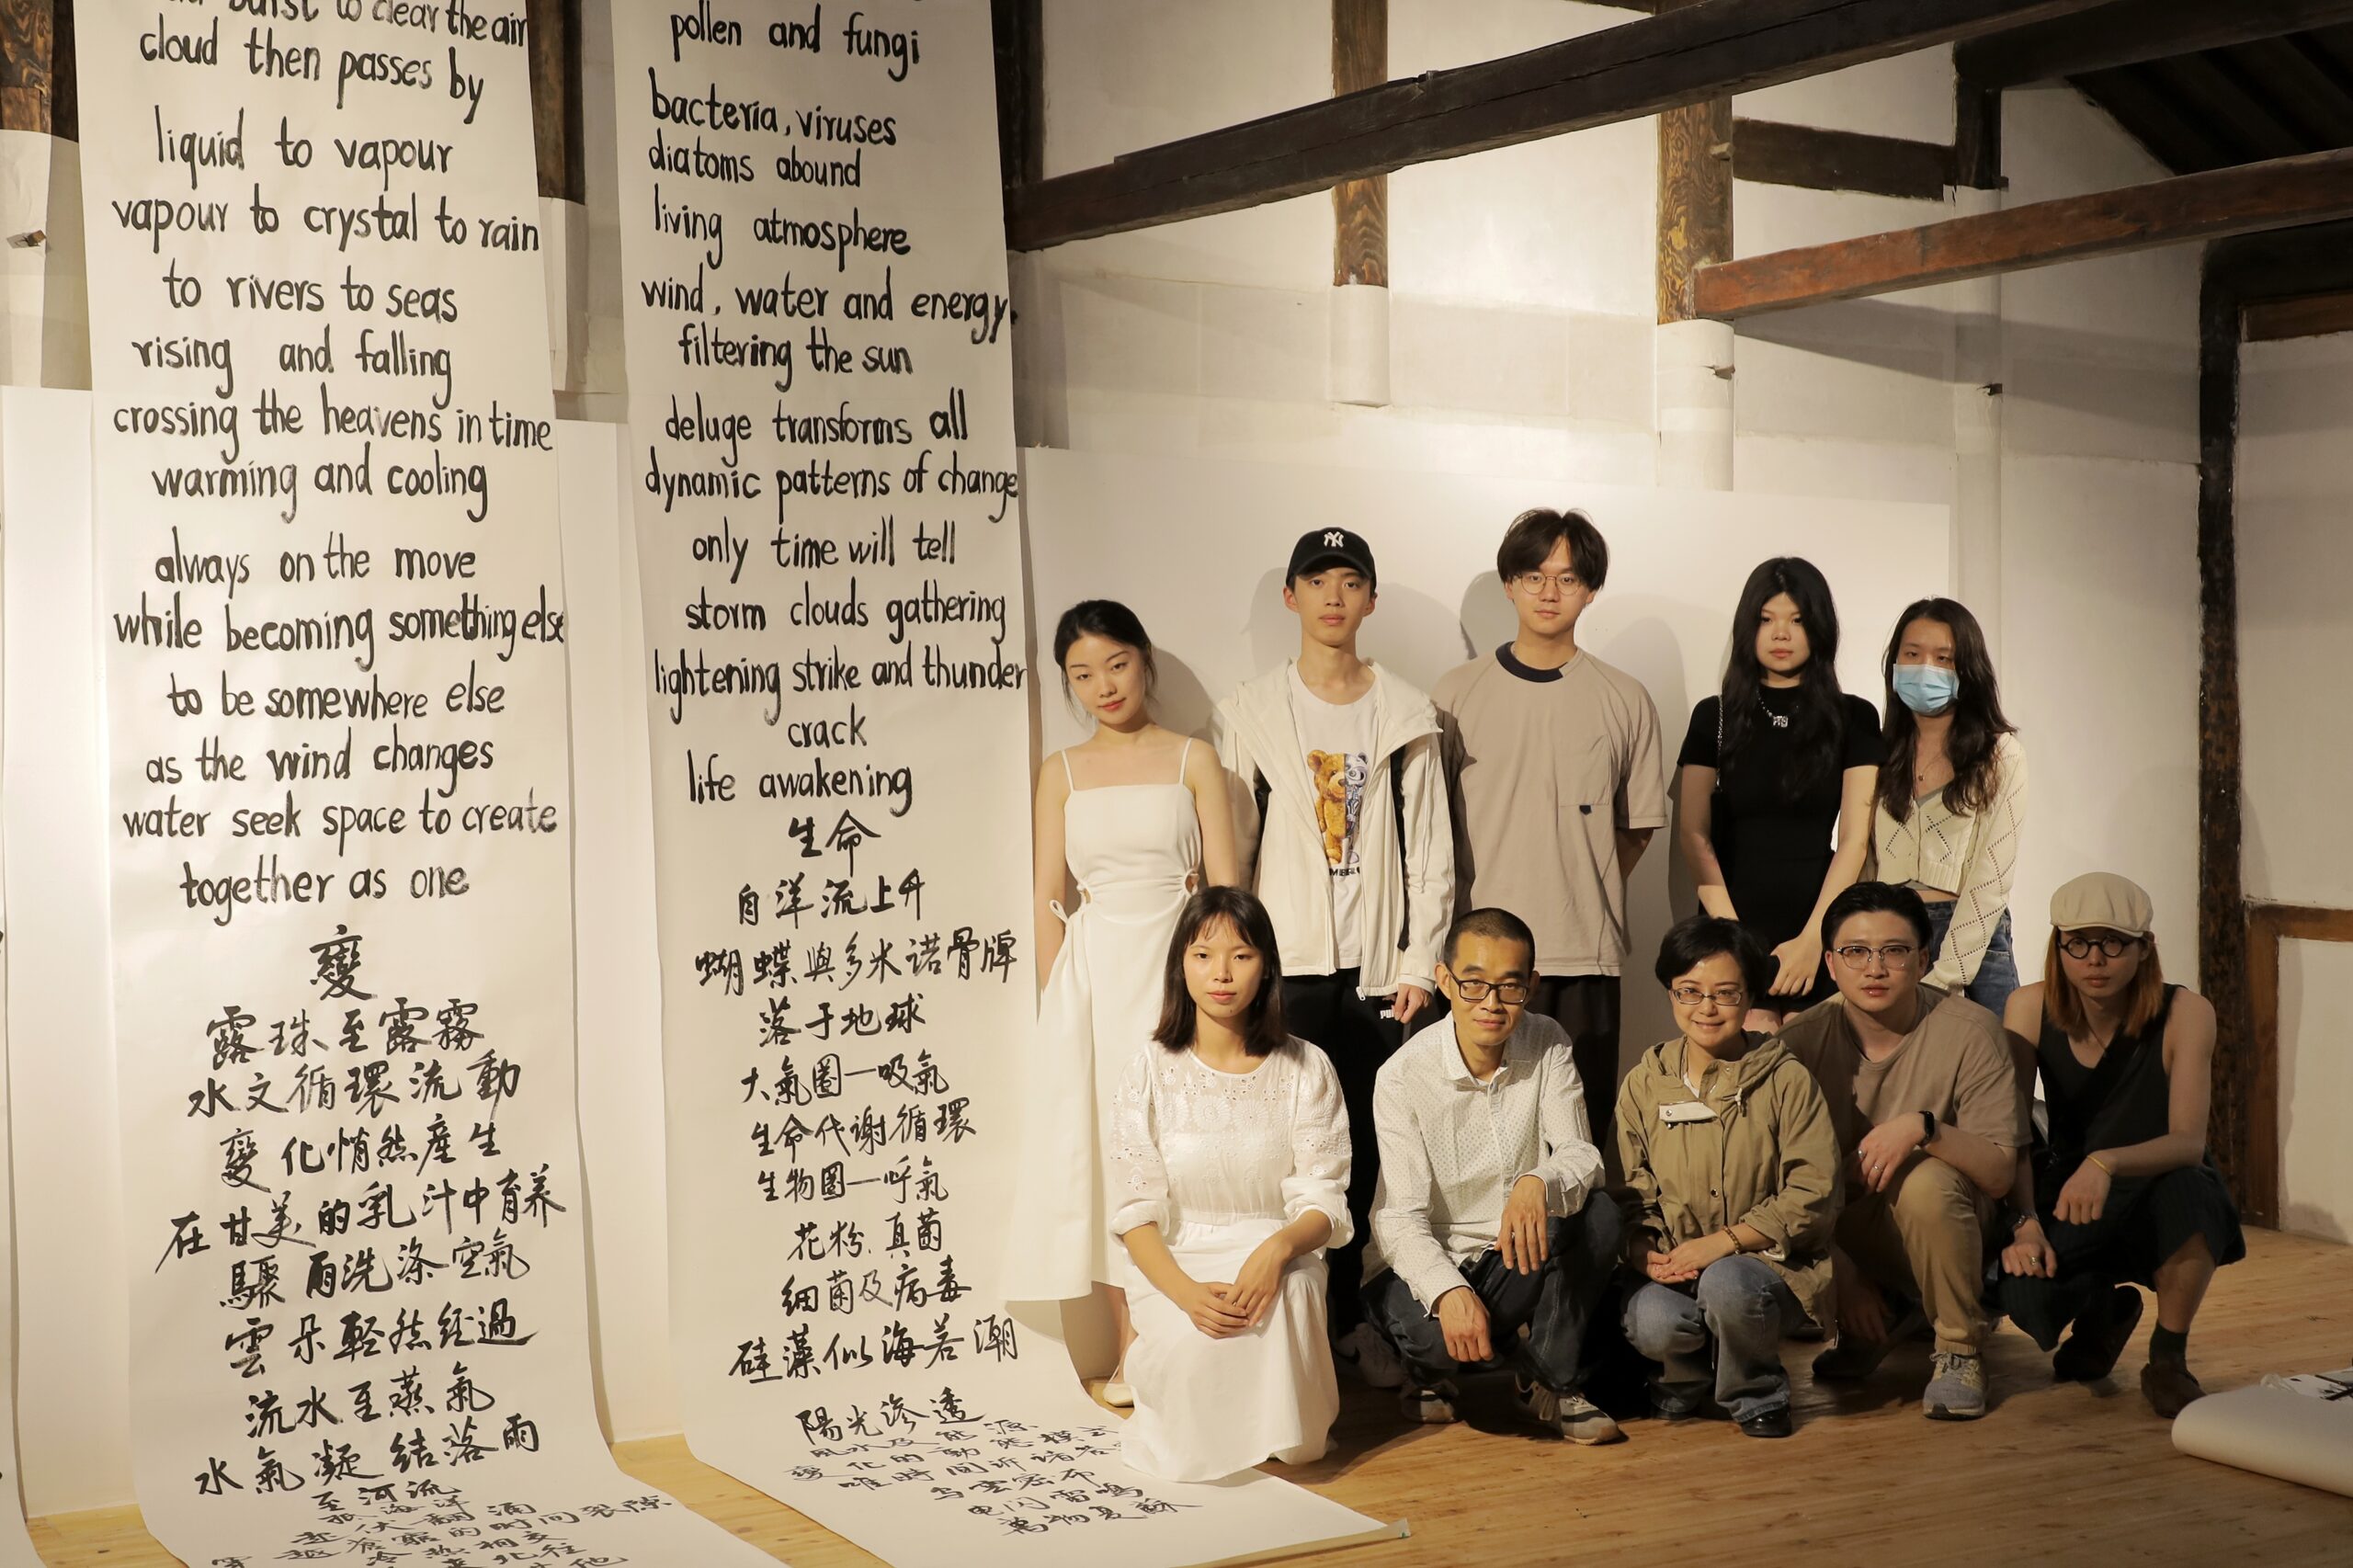 burst to clear the air
cloud then passes by
liquid to vapour
vapour to crystal to rain
to rivers to seas
rising and falling
crossing the heavens in time
warming and cooling
always on the move
while becoming something else
to be somewhere else
as the wind changes
water seek space to create
together as one
變
露珠至露霧
水文循環流動
變化悄然產生
在甘美的乳汁中育养
驟雨洗涤空氣
雲朵輕然经過
流水至蒸氣
水氣凝结落雨
至河流
pollen and fungi
bacteria, viruses
diatoms abound
living atmosphere
wind, water and energy.
filtering the sun
deluge transforms all
dynamic patterns of change
only time will tell
storm clouds gathering
lightening strike and thunder
crack
life awakening
生命
自洋流上升
蝴蝶與多米诺骨牌
落于地球
大氣圈一吸氣
生命代谢循環
生物圈一呼氣
花粉、真菌
细菌及病毒
硅藻似海若潮
陽光渗透
風水及能源
變化的動能模式
唯時間诉诸若
乌雲密布
电闪雷鳴
萬物复蘇
NY